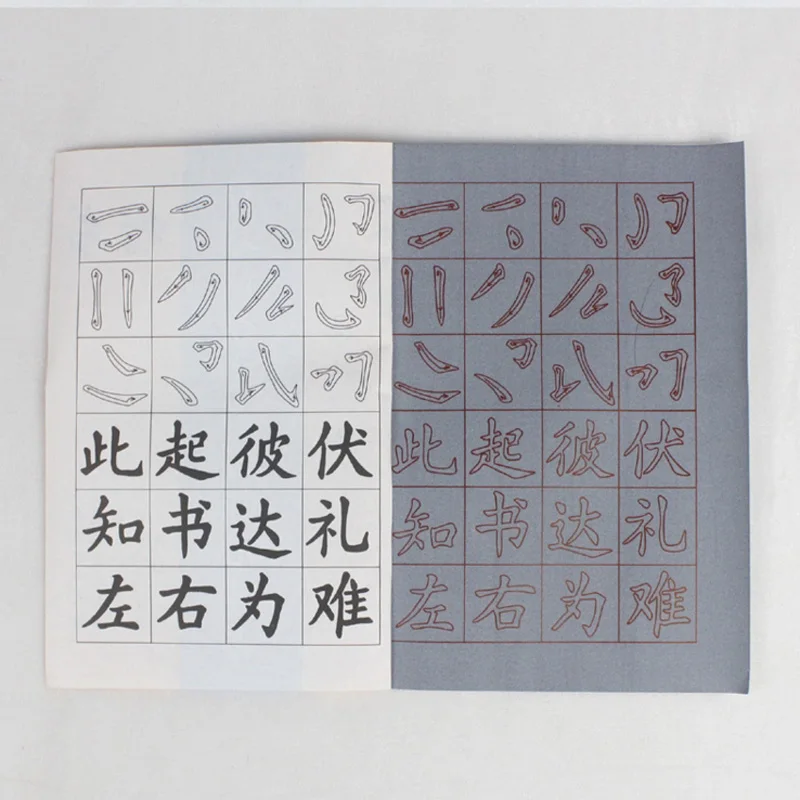 此起彼伏
知书达礼
左右为难
此起彼伏
知书达礼
左右为难